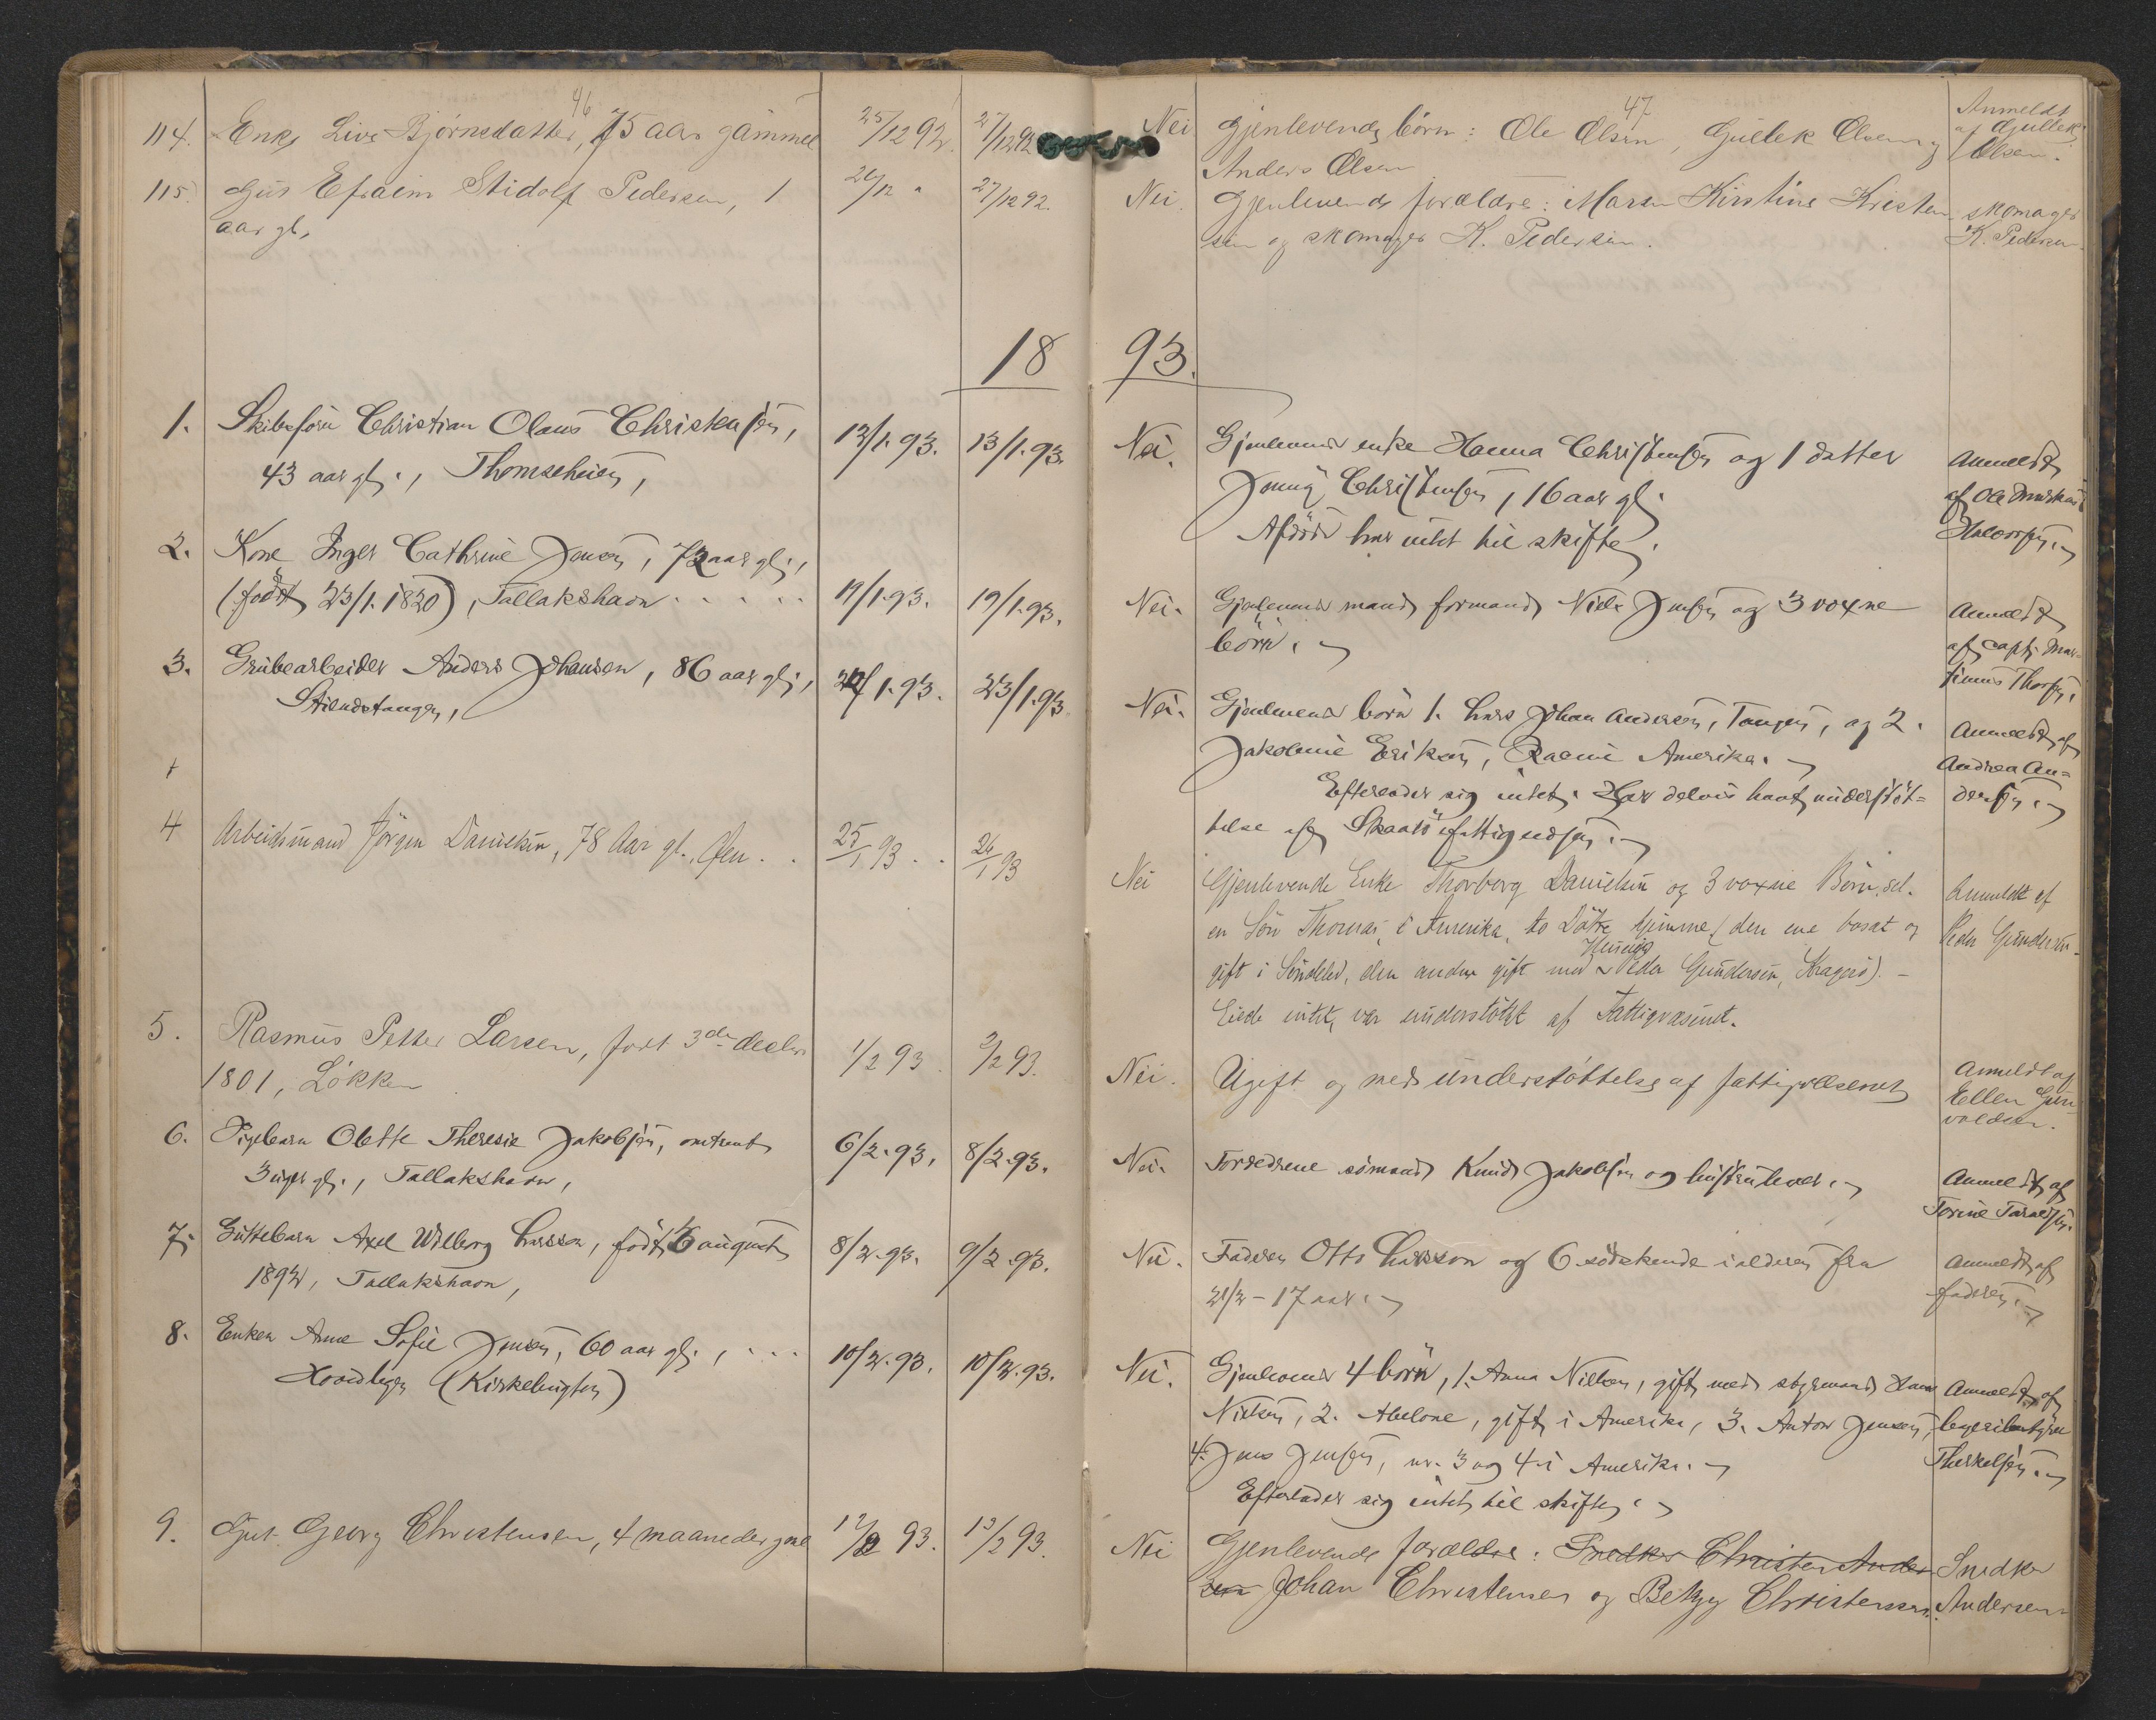 46
114. Enke Live Bjørnsdatter, 75 aar gammel 25/12 92. 27/12 92
115. Gut Efraim Stidolf Pedersen, 1 26/12 " 27/12 92.
aar gl,
18
1. Skibsfører Christian Olaus Christensen, 12/1.93. 13/1.93.
43 aar gl., Thomseheien,
2. Kone Inger Cathrine Jensen, 73 aar gl.,
(født 23/1.1820), Tallakshavn . . . . . 19/1.93. 19/1.93.
3. Grubearbeider Anders Johansen, 86 aar gl., 22/1.93. 23/1.93.
Stilnestangen,
+
4 Arbeidsmand Jörgen Danielsen, 78 Aar gl., Øen . . 25/1 93 . . 26/1 93
5. Rasmus Petter Larsen, født 3de decbr 1/2 93. 2/2 93.
1801, Løkken
6. Pigebarn Olette Theresie Jakobsen, omtrent 6/2.93. 8/2.93.
3 uger gl., Tallakshavn,
7. Guttebarn Axel Wilborg Larsson, født 6 august 8/2.93. 9/2.93.
1892, Tallakshavn,
8. Enken Anne Sofie Jensen, 60 aar gl., . . . 10/2.93. 10/2.93.
(Kirkebugten)
9. Gut Georg Christensen, 4 maaneder gml 12/2 93. 13/2 93.
47
Nei. Gjenlevende børn: Ole Olsen, Gullek Olsen og
Anders Olsen
Anmeldt
af Gullek
Olsen.
Nei. Gjenlevende forældre: Maren Kirstine Kristen
sen og skomager K. Pedersen.
skomager
K. Pedersen
93.
Nei. Gjenlevende enke Hanna Christensen og 1 datter
Jenny Christensen, 16 aar gl.
Afdøde har intet til skifte.
Anmeldt
af Ole
Halvorsen.
Nei. Gjenlevende mand, formand Niels Jensen og 3 voxne
børn.
Anmeldt
af capt. Mar-
tinus Thorsen.
Nei. Gjenlevende börn 1. Lars Johan Andersen, Tangen, og 2.
Jakobine Eriksen, Racine Amerika.
Efterlader sig intet. Har delvis havt understøt=
telse af Skaatö fattigvæsen.
Anmeldt af
Andrea An=
dersen.
Nei Gjenlevende Enke Thorborg Danielsen og 3 voxne Börn,
en Sön Thomas, i Amerika, to Dötre hjemme (den ene bosat og
gift i Söndeled, den anden gift med Peder Gundersen, Kragerö). –
Eiede intet, var understöttet af Fattigvæsenet.
Anmeldt af
Peder Gundersen.
Nei. Ugift og med understøttelse af fattigvæsenet
Anmeldt af
Ellen Gun
valdsen.
Nei. Forældrene sømand Knud Jakobsen og hustru lever.
Anmeldt af
Torine Taraldsen.
Nei. Faderen Otto Larsson og 6 sødskende i alderen fra
2 1/2 – 17 aar.
Anmeldt af
faderen.
Nei. Gjenlevende 4 börn, 1. Anna Nielsen, gift med styrmand Hans
Nielsen, 2. Abelone, gift i Amerika, 3. Anton Jensen,
4. Jens Jensen, nr. 3 og 4 i Amerika.
Efterlader sig intet til skifte.
Anmeldt af
Therkelsen.
Nei Gjenlevende forældre: Snedker Christen Ander
sen Johan Christensen og Betzy Christensen.
Snedker
Andersen